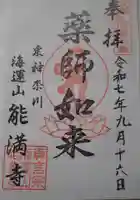 奉拝
令和七年九月十六日
薬師如来
東神奈川
海運山
能満寺